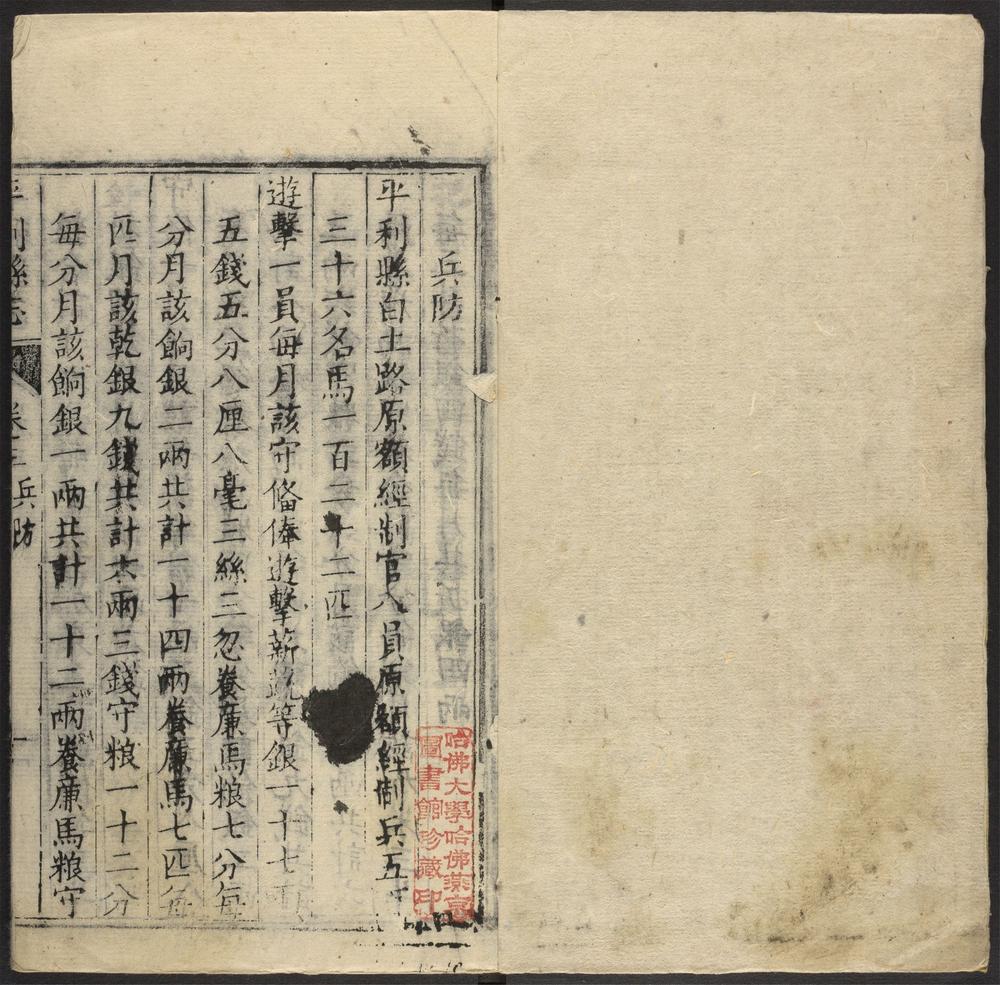 兵防
平利縣白土路原額經制官八員原額經制兵五
三十六名馬一百二十二匹
遊擊一員每月該守備俸遊擊薪蔬等銀一十七兩
五錢五分八厘八毫三絲三忽養廉馬粮七分每
分月該餉銀二兩共計一十四兩養廉馬七匹每
匹月該乾銀九錢共計六兩三錢守粮一十二分
每分月該餉銀一兩共計一十二兩養廉馬粮守
平利縣志
卷三兵防
哈佛大學哈佛燕京
圖書館珍藏印